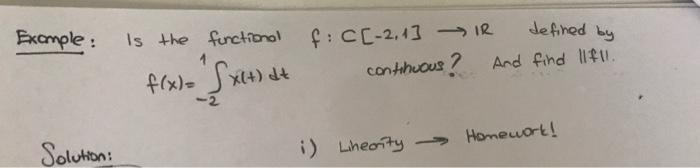 Example: Is the functional f: C[-2,1] → IR defined by
f(x)= ∫₋₂¹ x(t) dt continuous? And find ||f||.
Solution: i) Linearity → Homework!